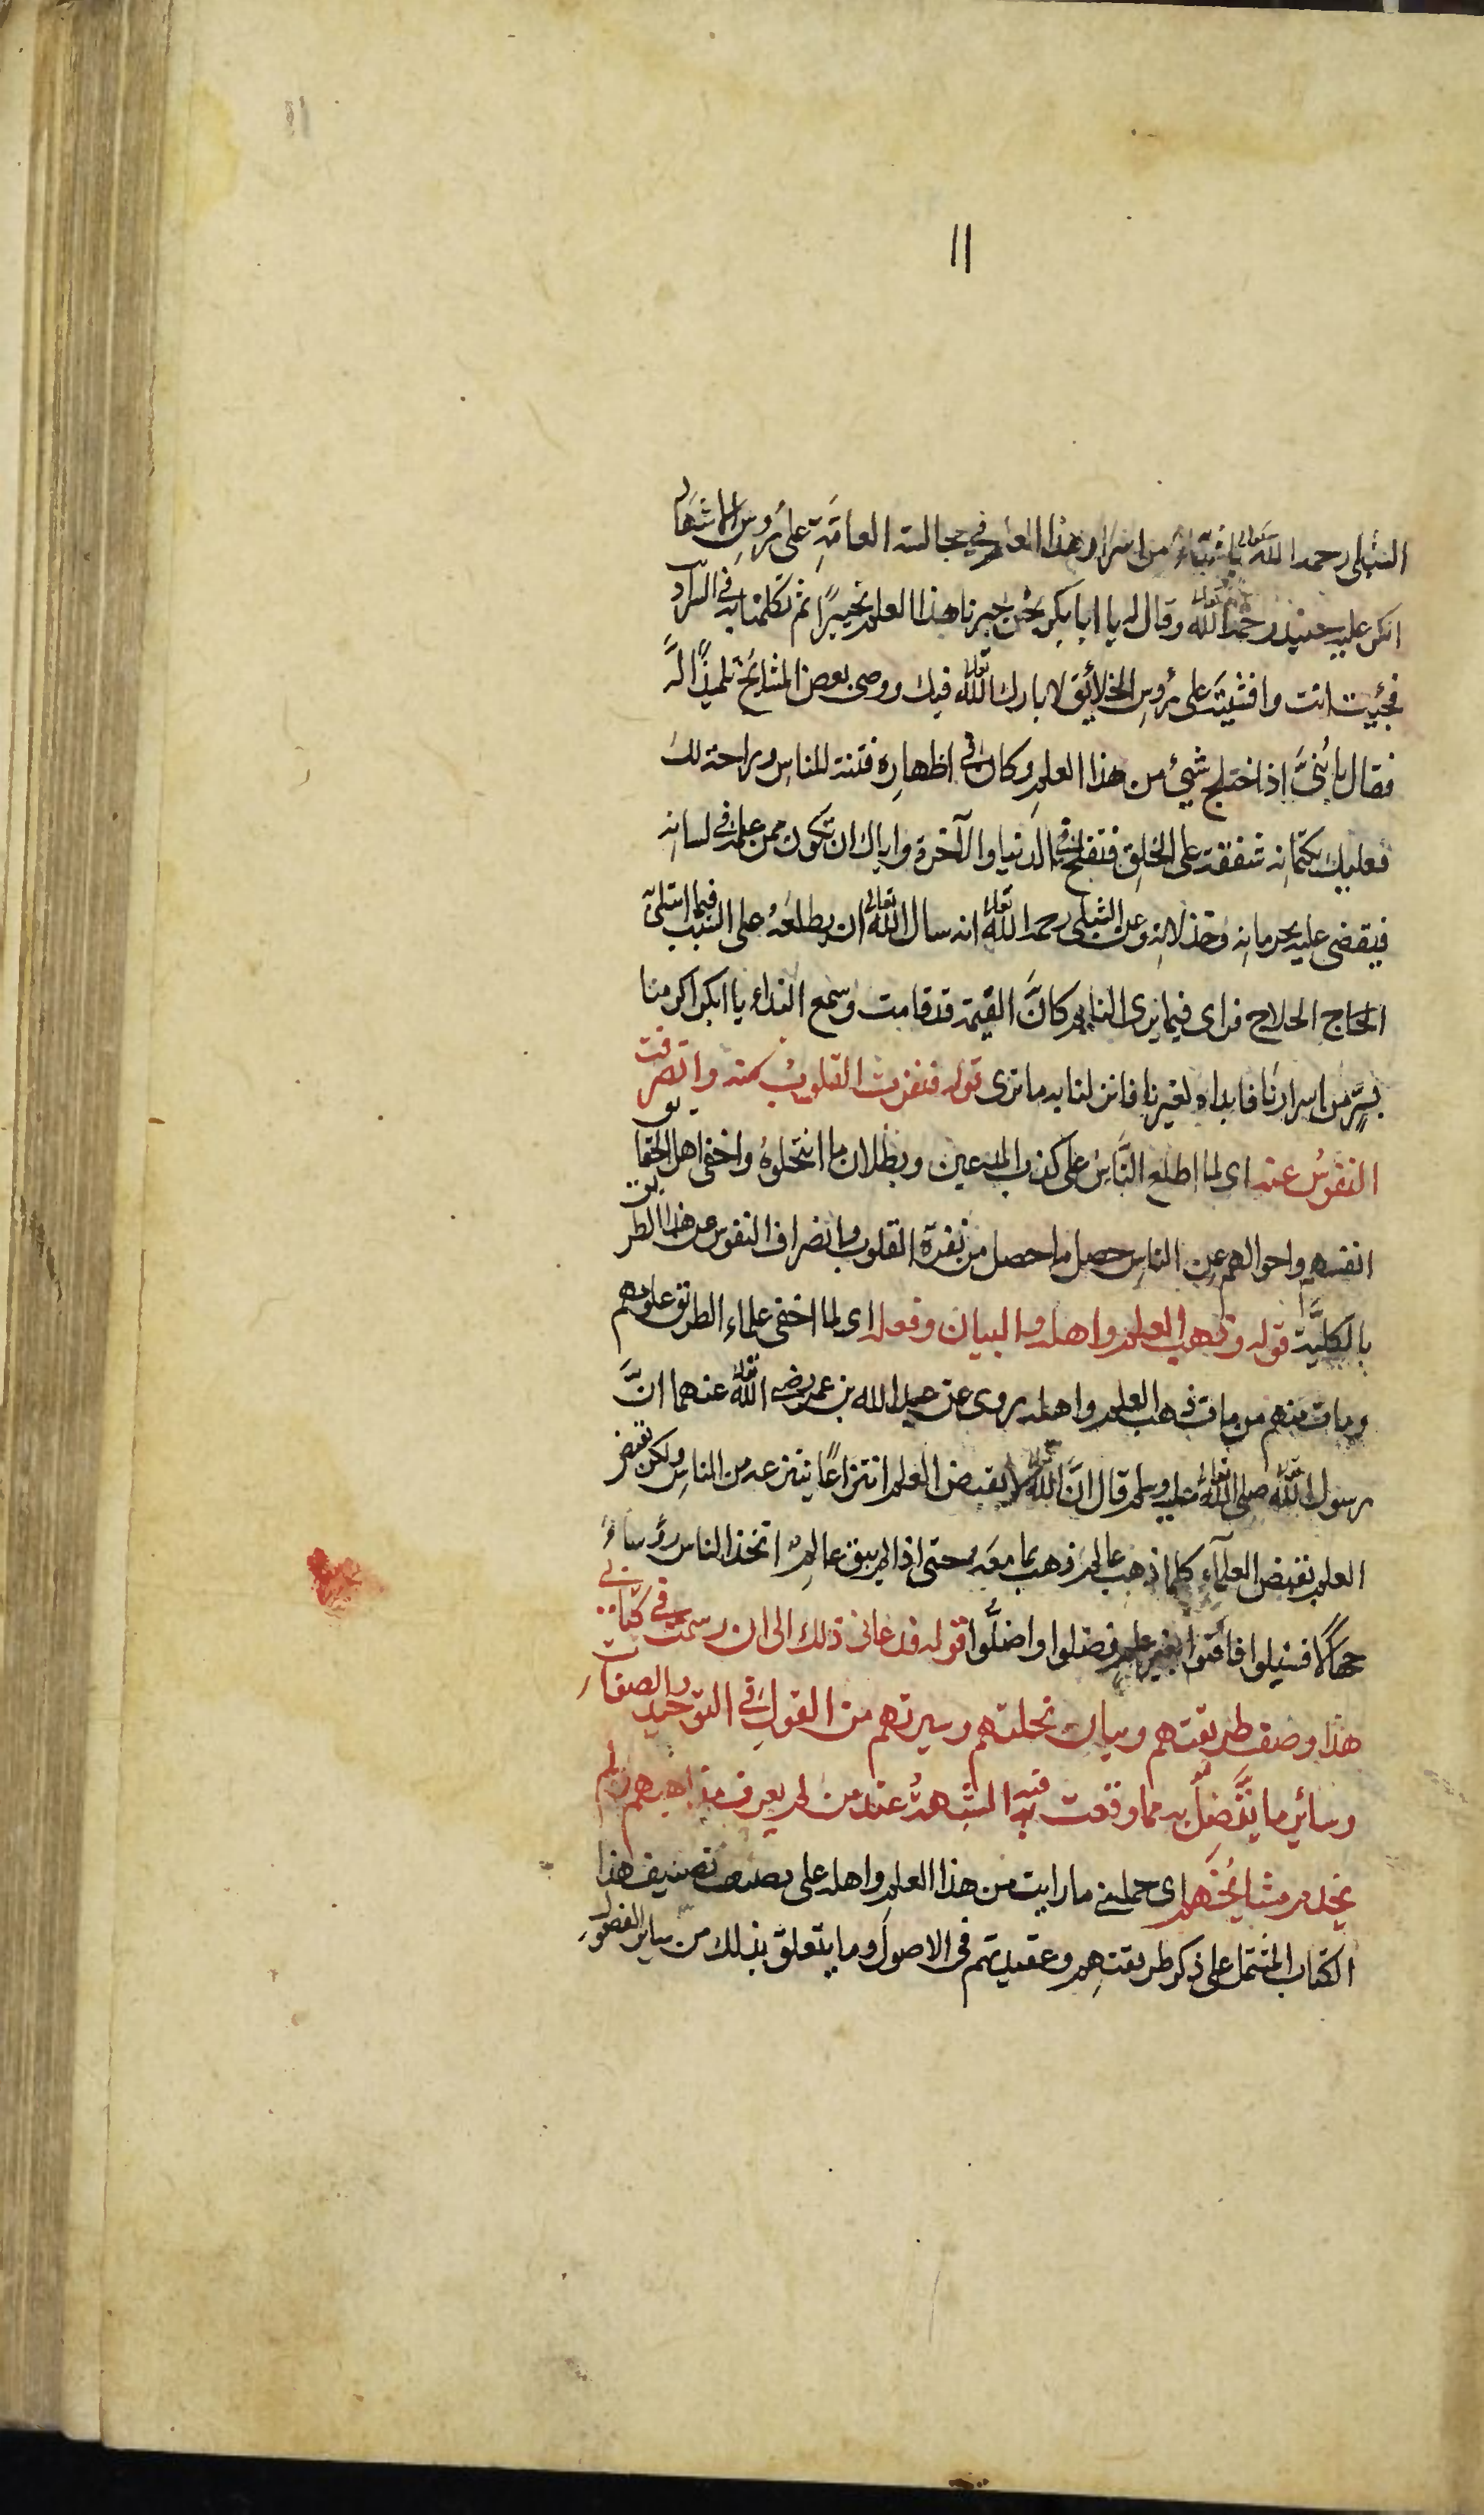 ١١
الشبلى رحمه الله تعالى باشياء من اسرار هذا العلم فى مجالسة العامّةِ على رُوسِ الاشهاد
انكر عليه جنيد رحمه الله تعالى وقال له يا ابا بكر نحن حبرنا هذا العلم تحبيرًا ثم تكلمنا به فى السراديب
فجئت انت وافشيته على رُوسِ الخلائق لا بارك الله تعالى فيك ووصى بعض المشايخ تلميذًا لَه
فقال يا بُنىَّ اذا اختلج شيئ من هذا العلم وكان فى اظهارِه فتنة للناسِ وراحة لك
فعليك بكتمانِه شفقة على الخلقِ فتفلح فى الدنيا والآخرة واياك ان تكون ممن علمه فى لسانِه
فيقضى عليه بحرمانِه وخذلانِه وعن الشبلى رحمه الله تعالى انه سال الله تعالى ان يطلعَه على السبب فيما ابتلى به
الحاج الحلاج فراى فيما يرى النايم كانَّ القيمة قد قامت وسمع النداء يا ابا بكر اكرمنا
بسرٍّ من اسرارنا فابداه لغيرنا فانزلنا به ما ترى قوله فنفرت القلوبُ منه وانصرفت
النفوسُ عنه اى لما اطلع النَّاسُ على كذب المدعين وبطلان ما انتحلوهُ واخفى اهل الحقايق
انفسهم واحوالهم عن الناسِ حصل ما حصل من نفرة القلوب وانصراف النفوس عن هذا الطريق
بالكليَّة قوله وذهب العلم واهله والبيان وفعله اى لما اخفى علماء الطريق علومهم
ومات منهم من مات ذهب العلم واهله روى عن عبد الله بن عمر رضى الله تعالى عنهما انَّ
رسول الله تعالى صلى الله تعالى عليه وسلم قال انَّ الله تعالى لا يقبض العلم انتزاعًا ينتزعه من الناسِ ولكن يقبض
العلم بقبض العلمآءِ كلما ذهب عالم ذهب بما معه حتى اذا لم يبق عالم اتخذ الناس رؤساءً
جهالًا فسئلوا فافتوا بغير علم فضلوا واضلُّوا قوله فدعانى ذلك الى ان رسمت فى كتابى
هذا وصف طريقتهم وبيان نحلتهم وسيرتهم من القولِ فى التوحيد والصفات
وسائرِ ما يتّصل به مما وقعت فيه الشبهةُ عند من لم يعرف مذاهبهم ولم
يخدم مشايخَهم اى حملنى ما رايت من هذا العلم واهله على تصنيف هذا
الكتاب المشتمل على ذكر طريقتهِم وعقيدتهم فى الاصول وما يتعلق بذلك من ساير الفصول